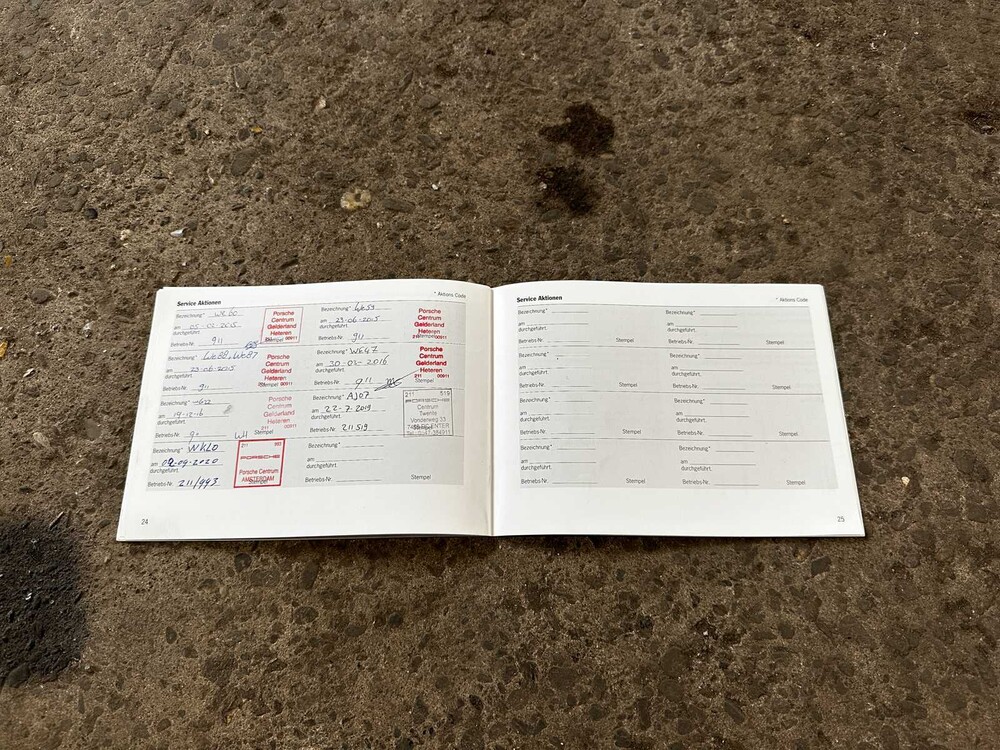 Service Aktionen
* Aktions Code
Bezeichnung*
am 05-02-2015
durchgeführt.
Betriebs Nr. 911
Porsche
Centrum
Gelderland
Heteren
Stempel 00911
Bezeichnung* We59
am 23-06-2015
durchgeführt.
Betriebs-Nr. 911
Porsche
Centrum
Gelderland
Heteren
211 00911
Bezeichnung* We88, We87
am 23-06-2015
durchgeführt.
Betriebs-Nr. 911
Porsche
Centrum
Gelderland
Heteren
Stempel 00911
Bezeichnung* WG47
am 30-02-2016
durchgeführt.
Betriebs-Nr. 911
Porsche
Centrum
Gelderland
Heteren
211 00911
Stempel
Bezeichnung*
am 19-12-16
durchgeführt.
Betriebs Nr.
Porsche
Centrum
Gelderland
Heteren
Stempel
Bezeichnung* AJ07
am 22-7-2019
durchgeführt.
Betriebs-Nr. 211 519
211 519
PORSCHE
Centrum
Twente
Vonderweg 23
ENTER
Bezeichnung* WKL0
am 02-09-2020
durchgeführt.
Betriebs-Nr. 211/993
211 993
PORSCHE
Porsche Centrum
AMSTERDAM
Stempel
Bezeichnung*
am
durchgeführt.
Betriebs-Nr.
Stempel
24
Service Aktionen
* Aktions Code
Bezeichnung*
am
durchgeführt.
Betriebs-Nr.
Stempel
Bezeichnung*
am
durchgeführt.
Betriebs-Nr.
Stempel
Bezeichnung*
am
durchgeführt.
Betriebs-Nr.
Stempel
Bezeichnung*
am
durchgeführt.
Betriebs-Nr.
Stempel
Bezeichnung*
am
durchgeführt.
Betriebs-Nr.
Stempel
Bezeichnung*
am
durchgeführt.
Betriebs-Nr.
Stempel
Bezeichnung*
am
durchgeführt.
Betriebs-Nr.
Stempel
Bezeichnung*
am
durchgeführt.
Betriebs-Nr.
Stempel
25